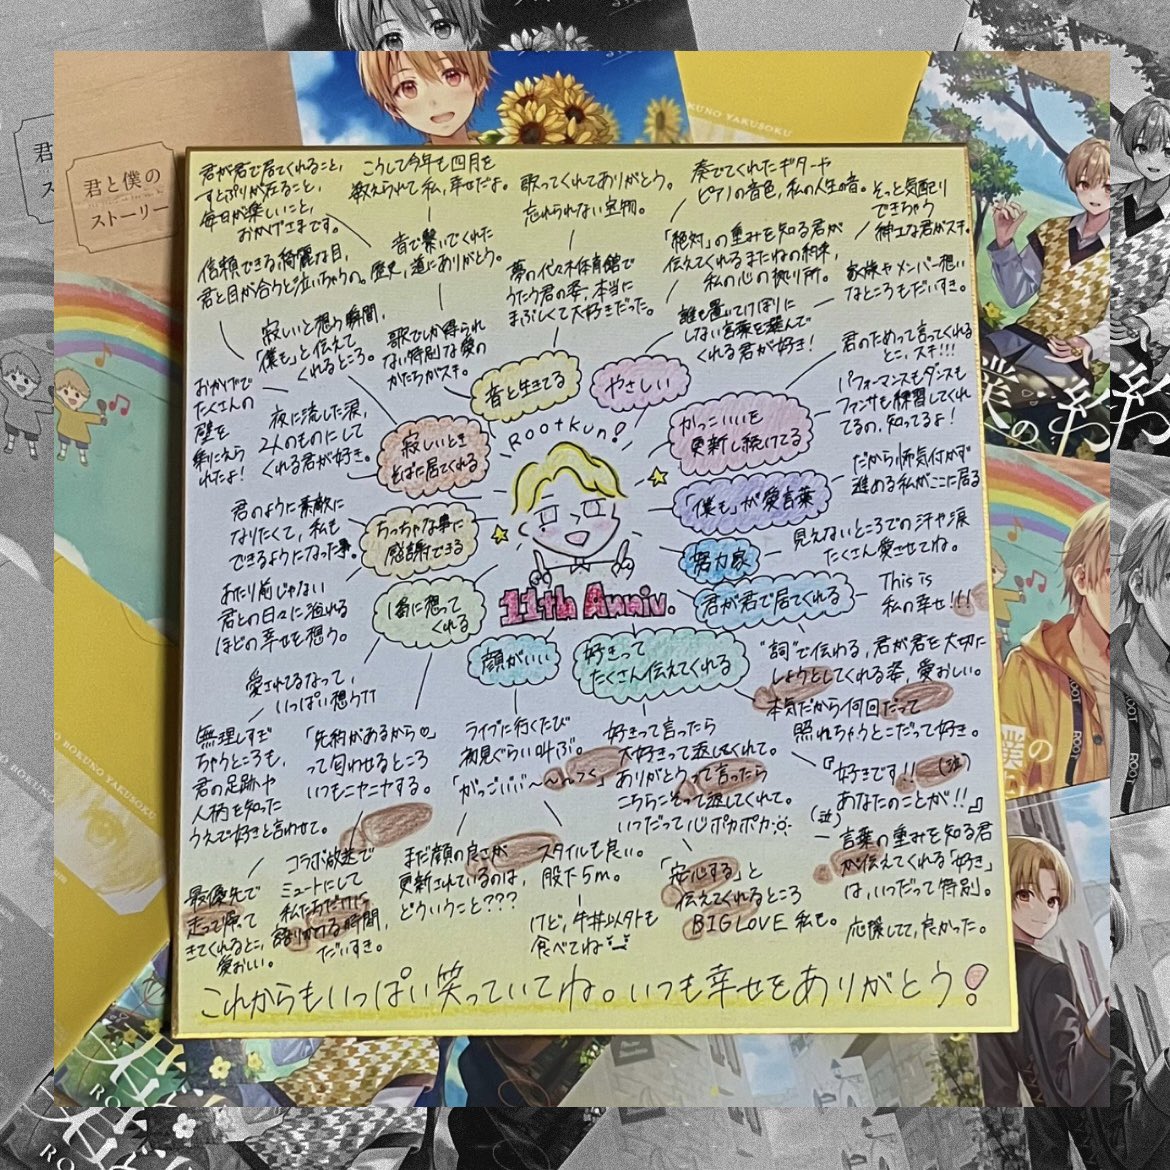 君と僕の
ストーリー
KUNO YAKUSOKU
君が君で居てくれること、
すとぷりが在ること、
毎日が楽しいこと、
おかげさまです。
こうして今年も四月を
数えられて私、幸せだよ。
歌ってくれてありがとう。
忘れられない宝物。
奏でてくれたギターや
ピアノの音色、私の人生の音。
そっと気配り
できちゃう
紳士な君がスキ。
信頼できる綺麗な目、
君と目が合うと泣いちゃうの。
音で繋いでくれた
歴史、道にありがとう。
夢の代々木体育館で
うたう君の姿、本当に
まぶしくて大好きだった。
「絶対」の重みを知る君が
伝えてくれるまたねの約束、
私の心の拠り所。
家族やメンバー想い
なところもだいすき。
寂しいと想う瞬間、
「僕も」と伝えて
くれるところ。
歌でしか得られ
ない特別な愛の
かたちがスキ。
誰も置いてけぼりに
しない言葉を選んで
くれる君が好き!
君のためって言ってくれる
とこ、スキ!!!
おかげで
たくさんの
壁を
乗りこえら
れたよ!
夜に流した涙、
2人のものにして
くれる君が好き。
寂しいとき
そばに居てくれる
音と生きてる
やさしい
かっこいいを
更新し続けてる
パフォーマンスもダンスも
ファンサも練習してくれ
てるの、知ってるよ!
Rootkun!
君のように素敵に
なりたくて、私も
できるようになった事。
ちっちゃな事に
感謝できる
「僕も」が愛言葉
だから怖気付かず
進める私がここに居る
努力家
見えないところでの汗や涙
たくさん愛させてね。
あたり前じゃない
君との日々に溢れる
ほどの幸せを想う。
1番に想って
くれる
11th Anniv.
君が君で居てくれる
This is
私の幸せ!!!
愛されてるなって、
いっぱい想うTT
顔がいい
好きって
たくさん伝えてくれる
"詞"で伝わる、君が君を大切に
しようとしてくれる姿、愛おしい。
本気だから何回だって
照れちゃうとこだって好き。
無理しすぎ
ちゃうところも、
君の足跡や
人柄を知った
うえで好きと言わせて。
「先約があるから♡」
って匂わせるところ
いつもニヤニヤする。
ライブに行くたび
初見ぐらい叫ぶ。
「がっごいいい～～んっく」
好きって言ったら
大好きって返してくれて。
ありがとうって言ったら
こちらこそって返してくれて。
いつだって心ポカポカ
『好きです!! (泣)
あなたのことが!!』
(泣)
言葉の重みを知る君
が伝えてくれる「好き」
は、いつだって特別。
最優先で
走って帰って
きてくれるとこ、
愛おしい。
コラボ放送で
ミュートにして
私たちだけに
語りかける時間、
だいすき。
まだ顔の良さが
更新されているのは、
どういうこと???
スタイルも良い。
股下5m。
けど、牛丼以外も
食べてね
「安心する」と
伝えてくれるところ
BIG LOVE 私も。
応援してて、良かった。
これからもいっぱい笑っていてね。いつも幸せをありがとう!
NO BOKUNO YAKUSOKU
ROOT